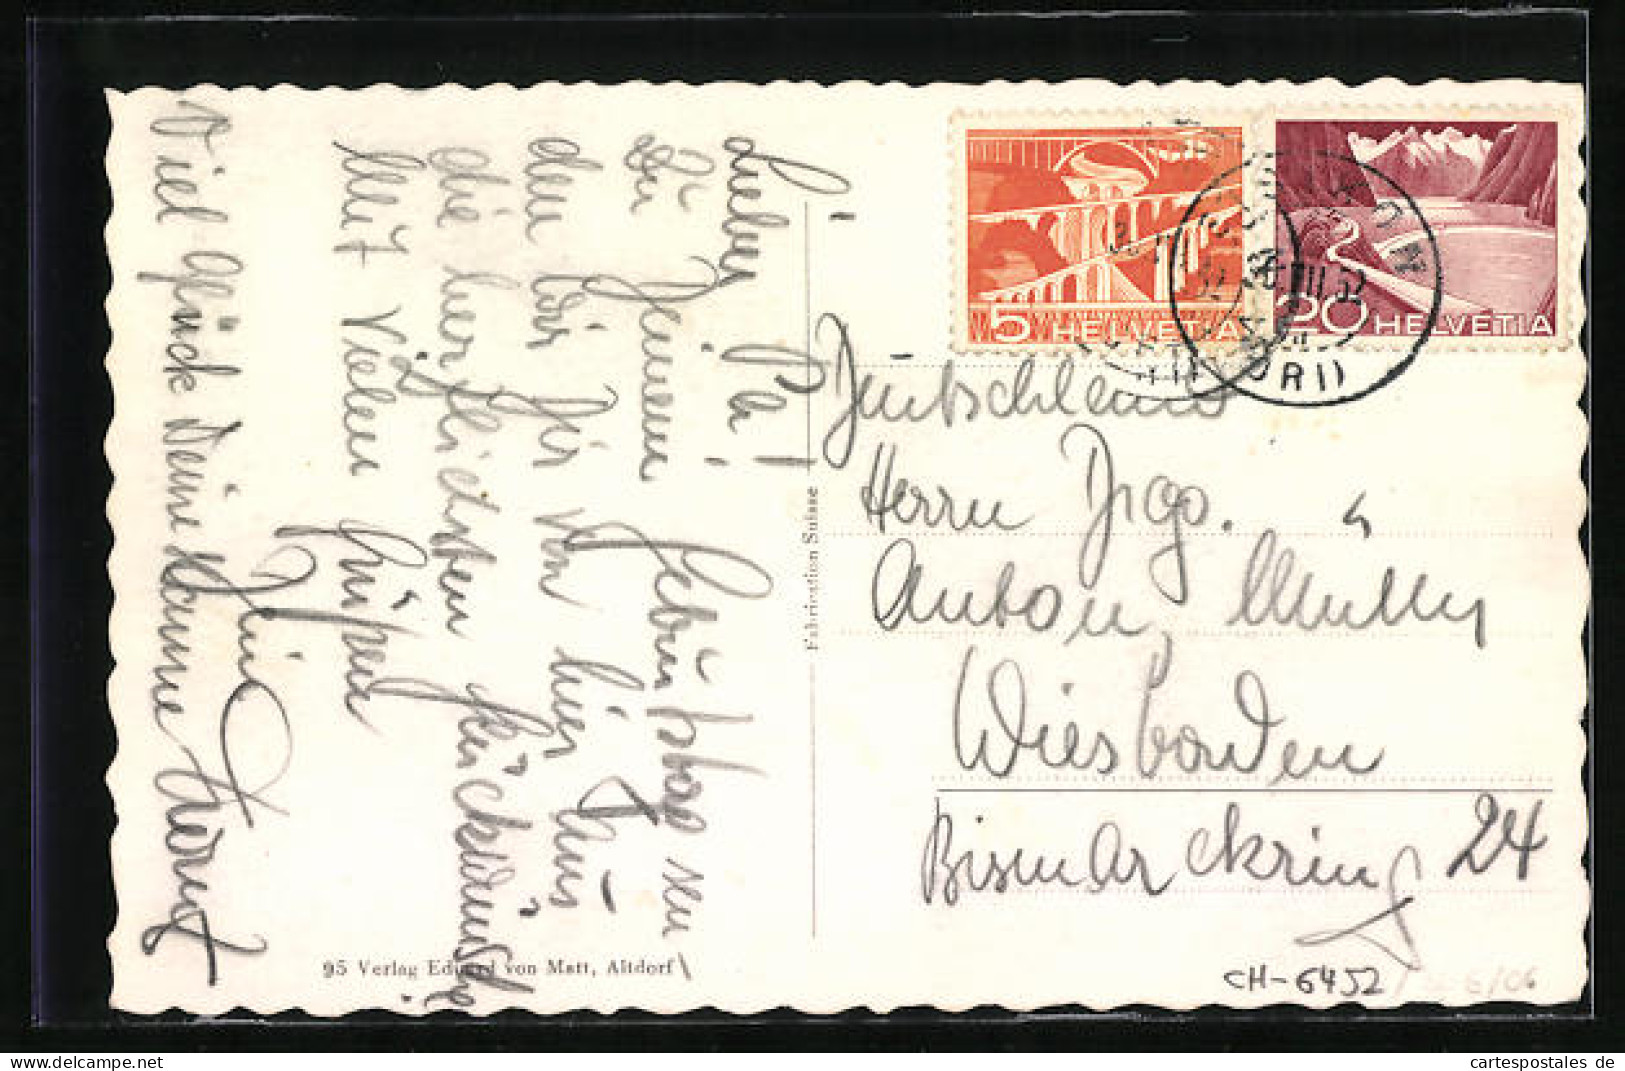 Lieber Pa!
Zu Deinem Geburtstag sen
den wir Dir von hier aus
die herzlichsten Glückwünsche
Mit vielen Grüßen
Deine
Viel Glück Deine Hanne
95 Verlag Eduard von Matt, Altdorf
Fabrication Suisse
5 HELVETIA
20 HELVETIA
(URI)
Deutschland
Herrn
Anton Müller
Wiesbaden
Bismarckring 24
CH-6452
cartespostales de